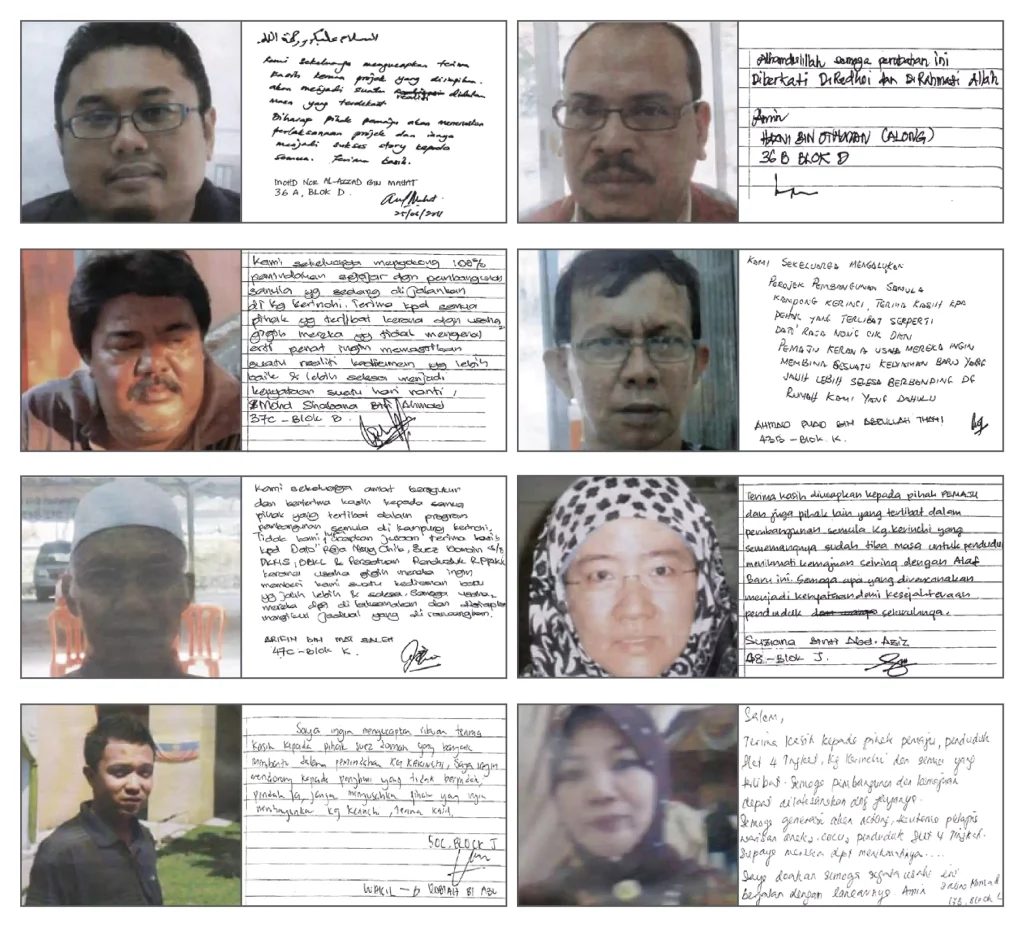 السلام عليكم ورحمة الله
Kami sekeluarga mengucapkan terima
kasih kerana projek yang diimpikan
akan menjadi suatu realiti didalam
masa yang terdekat
Diharap pihak pemaju akan meneruskan
perlaksanaan projek dan ianya
menjadi sukses story kepada
semua. Terima kasih.
MOHD NOR AL-AZZAD BIN MAHAT
36 A, BLOK D.
25/06/2011
Alhamdulillah semoga perobahan ini
Diberkati DiRedhoi dan DiRahmati Allah
Amin
BIN OTHMAN (ALONG)
36 B BLOK D
Kami sekeluarga menyokong 100%
pemindahan selajar dan pembangunan
semula yg sedang dijalankan
di kg kerinchi. Terima kpd semua
pihak yg terlibat kerana atan usaha
gigih mereka yg tidak mengenal
erti penat ingin memastikan
suatu realiti kediaman yg lebih
baik & lebih selesa menjadi
kenyataan suatu hari nanti,
Mohd Shabana Bin Ahmad
37C - Blok B.
KAMI SEKELUARGA MENGALUKAN
PEROJEK PEMBANGUNAN SEMULA
KAMPONG KERINCI, TERIMA KASIH KPD
PEHAK YANG TERLIBAT SERPERTI
DATO' RAJA NONG CIK DAN
PEMAJU KERANA USAHA MEREKA INGIN
MEMBINA SESUATU KEDIAMAN BARU YANG
JAUH LEBIH SELESA BERBANDING DG
RUMAH KAMI YANG DAHULU
AHMAD PUAD BIN ABDULLAH THANI
43B - BLOK. K.
Kami sekeluarga amat bersyukur
dan berterima kasih kepada semua
pihak yang terlibat dalam program
pembangunan semula di kampung kerinchi.
Tidak kami ucapkan jutaan terima kasih
kpd Dato' Raja Nong Chik, Suez Domain S/B
DKMS, DBKL & Persatuan Penduduk RPPKK
kerana usaha gigih mereka ingin
memberi kami suatu kediaman baru
yg jauh lebih & selesa. Semoga usaha
mereka dpt di laksanakan dan diharapkan
mengikut jadual yang dirancangkan.
ARIFIN BIN MAT SALEH
47C - Blok K.
Terima Kasih diucapkan kepada pihak PEMAJU
dan juga pihak lain yang terlibat dalam
pembangunan semula Kg. Kerinchi yang
sememangnya sudah tiba masa untuk penduduk
menikmati kemajuan seiring dengan Alaf
Baru ini. Semoga apa yang dirancangkan
menjadi kenyataan demi kesejahteraan
penduduk seluruhnya.
Suziana Binti Abd. Aziz
48 - Blok J.
Saya ingin mengucapkan ribuan terima
kasih kepada pihak Suez Domain yang banyak
membantu dalam perpindahan KG KERINCHI, Saya ingin
kepada penghuni yang tidak berpindah,
pindah la, jangan menyusahkan pihak yang ingin
membangunkan Kg Kerinchi, Terima Kasih.
50C, BLOCK J
WAKIL - BT ABU
Salam,
Terima Kasih kepada pihak pemaju, penduduk
flet 4 Tingkat, Kg Kerinchi dan semua yang
terlibat. Semoga pembangunan dan kemajuan
dapat dilaksanakan dng jayanya.
Semoga generasi akan datang, terutama pelapis
warisan anak2, cucu, penduduk flet 4 Tingkat.
Supaya mereka dpt menikmatinya....
Saya doakan semoga segala usaha ini
berjalan dengan lancarnya Amin
17B, Block L